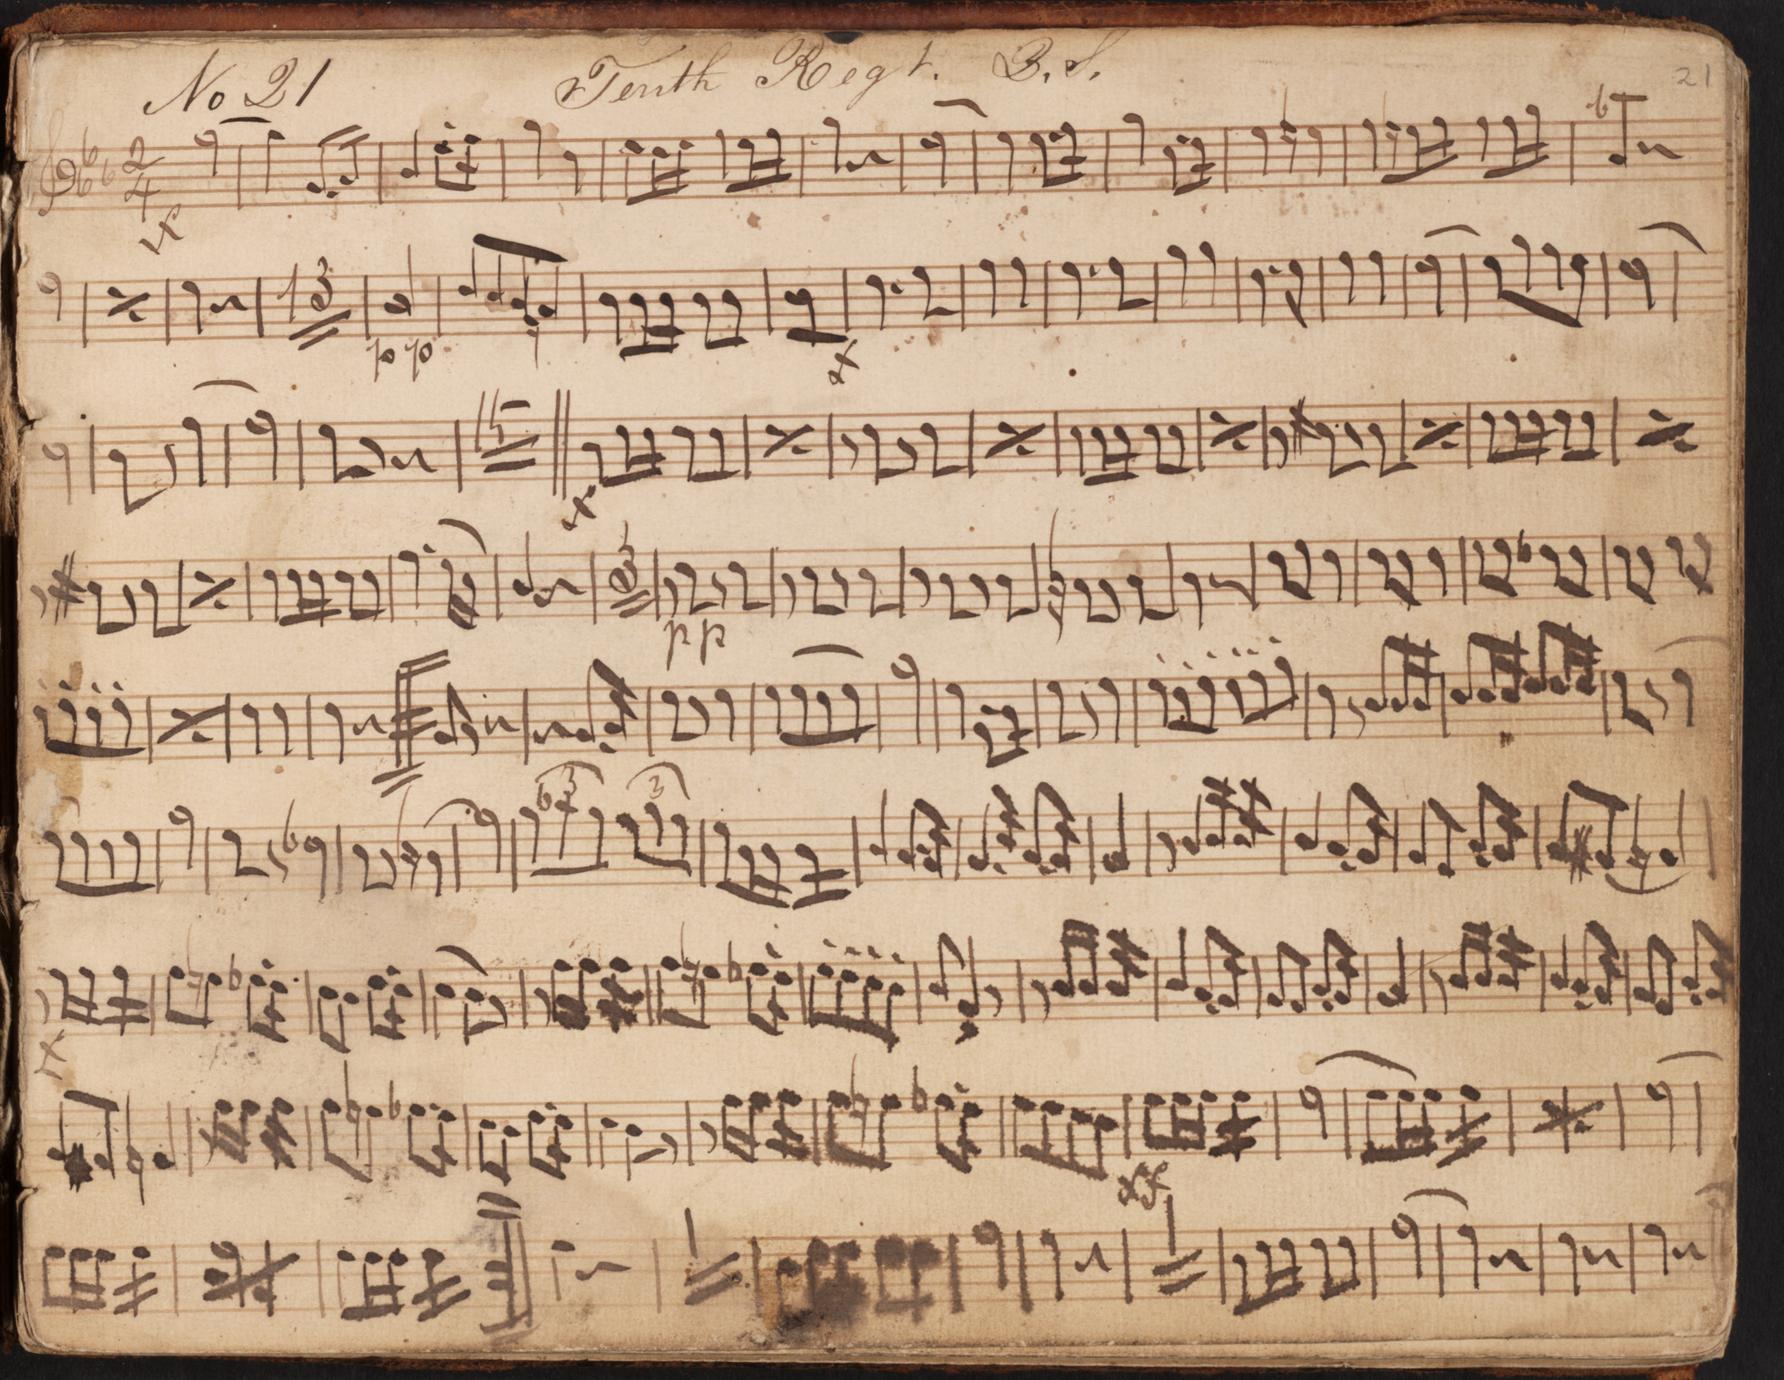 No 21 Tenth Regt. Q.S. 21
2
4
13
pp
15
3
pp
3 3